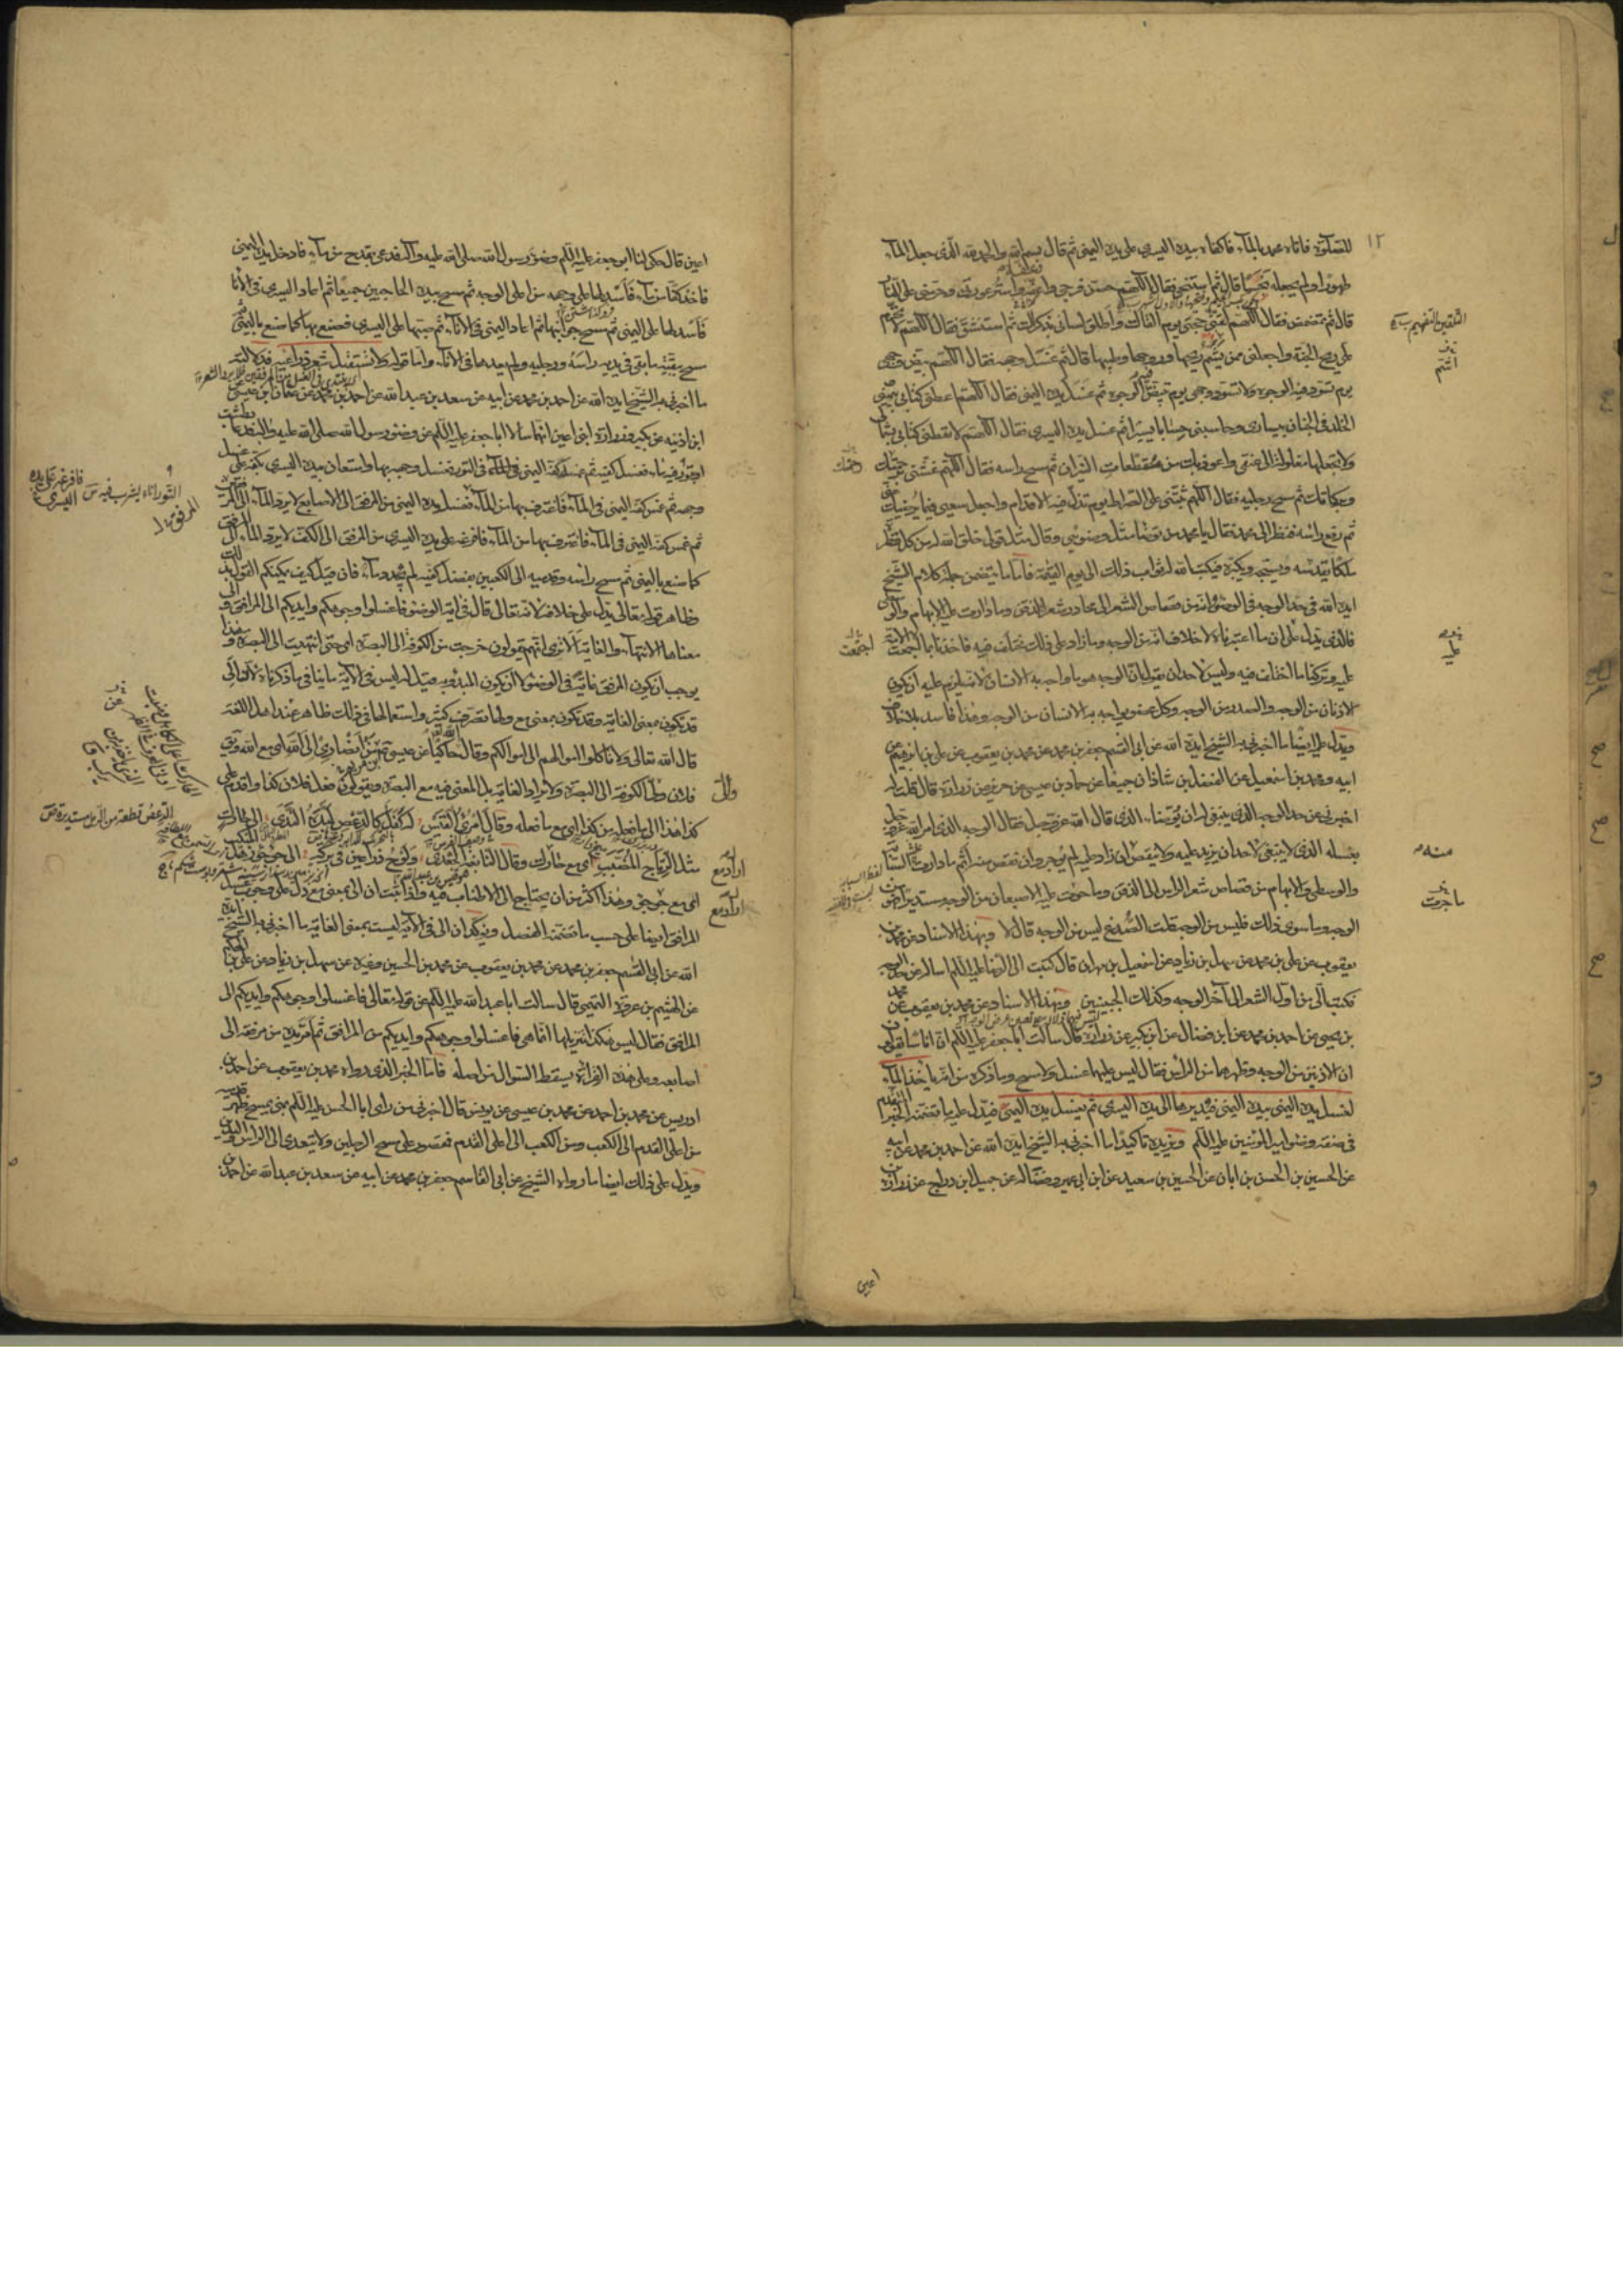 ١٢
للصلوة فاتاه محمد بالماء فاكفاه بيده اليسرى على يده اليمنى ثم قال بسم الله والحمد لله الذى جعل الماء
طهورا ولم يجعله نجسا قال ثم استنجى فقال اللهم حصن فرجى واعفه واستر عورتى وحرمنى على النار
قال ثم تمضمض فقال اللهم لقنى حجتى يوم القاك واطلق لسانى بذكرك ثم استنشق فقال اللهم لا تحرم
على ريح الجنة واجعلنى ممن يشم ريحها وروحها وطيبها قال ثم غسل وجهه فقال اللهم بيض وجهى
يوم تسود فيه الوجوه ولا تسود وجهى يوم تبيض الوجوه ثم غسل يده اليمنى فقال اللهم اعطنى كتابى بيمينى
الخلد فى الجنان بيسارى وحاسبنى حسابا يسيرا ثم غسل يده اليسرى فقال اللهم لا تعطنى كتابى بشمالى
ولا تجعلها مغلولة الى عنقى واعوذ بك من مقطعات النيران ثم مسح راسه فقال اللهم غشنى برحمتك
وبركاتك ثم مسح رجليه فقال اللهم ثبتنى على الصراط يوم تزل فيه الاقدام واجعل سعيى فيما يرضيك
ثم رفع راسه فنظر الى محمد فقال يا محمد من توضأ مثل وضوئى وقال مثل قولى خلق الله له من كل قطرة
ملكا يقدسه ويسبحه ويكبره فيكتب الله له ثواب ذلك الى يوم القيمة فاما ما يتضمن جملة كلام الشيخ
ايده الله فى حد الوجه فى الوضوء انه من قصاص الشعر الى محادر شعر الذقن وما دارت عليه الابهام والوسطى
فالذى يدل على ان ما اعتبرناه لا خلاف انه من الوجه وما زاد على ذلك مختلف فيه فاخذنا بما اجتمعت الامة
عليه وتركنا ما اختلف فيه وليس لاحد ان يقول ان الوجه هو ما واجه به الانسان لانه يلزم عليه ان يكون
الاذنان من الوجه والصدر من الوجه وكل عضو يواجه به الانسان من الوجه وهذا فاسد بلا خلاف
ويدل عليه ايضا ما اخبرنى به الشيخ ايده الله عن ابى القسم جعفر بن محمد عن محمد بن يعقوب عن على بن ابرهيم عن
ابيه ومحمد بن اسمعيل عن الفضل بن شاذان جميعا عن حماد بن عيسى عن حريز عن زرارة قال قلت له
اخبرنى عن حد الوجه الذى ينبغى له ان يوضأ الذى قال الله عز وجل فقال الوجه الذى امر الله عز وجل
بغسله الذى لا ينبغى لاحد ان يزيد عليه ولا ينقص ان زاد عليه لم يوجر وان نقص منه اثم ما دارت عليه السبابة
والوسطى والابهام من قصاص شعر الراس الى الذقن وما حوت عليه الاصبعان من الوجه مستديرا فهو من
الوجه وما سوى ذلك فليس من الوجه قلت الصدغ ليس من الوجه قال لا وبهذا الاسناد عن محمد بن
يعقوب عن على بن محمد عن سهل بن زياد عن اسمعيل بن مهران قال كتبت الى الرضا عليه السلم اساله عن حد الوجه
فكتب الى من اول الشعر الى آخر الوجه وكذلك الجبينين وبهذا الاسناد عن محمد بن يعقوب عن محمد
بن يحيى عن احمد بن محمد عن ابن فضال عن ابن بكير عن زرارة قال سالت ابا جعفر عليه السلم ان اناسا يقولون
ان الاذنين من الوجه وظهرهما من الرأس فقال ليس عليهما غسل ولا مسح وما ذكره من انه ياخذ الماء
لغسل يده اليمنى بيده اليمنى فيديرها الى يده اليسرى ثم يغسل يده اليمنى فيدل عليه ما تضمنه الخبر المتقدم
فى صفة وضوء امير المؤمنين عليه السلم ويزيده تاكيدا ما اخبرنى به الشيخ ايده الله عن احمد بن محمد عن ابيه
عن الحسين بن الحسن بن ابان عن الحسين بن سعيد عن ابن ابى عمير وفضالة عن جميل ابن دراج عن زرارة
منه
ما جرت
اجتمعت
اعين
اعين قال حكى لنا ابو جعفر عليه السلم وضوء رسول الله صلى الله عليه وآله فدعى بقدح من ماء فادخل يده اليمنى
فاخذ كفا من ماء فاسدلها على وجهه من اعلى الوجه ثم مسح بيده الحاجبين جميعا ثم اعاد اليسرى فى الاناء
فاسدلها على اليمنى ثم مسح جوانبها ثم اعاد اليمنى فى الاناء ثم صبها على اليسرى فصنع بها كما صنع باليمنى ثم
مسح ببقية ما بقى فى يديه راسه ورجليه ولم يعدهما فى الاناء واما قوله ولا يستقبل شعر ذراعيه فيدل عليه
ما اخبرنى به الشيخ ايده الله عن احمد بن محمد عن ابيه عن سعد بن عبد الله عن احمد بن محمد عن عثمان بن عيسى عن
ابن اذينه عن بكير وزرارة ابنى اعين انهما سالا ابا جعفر عليه السلم عن وضوء رسول الله صلى الله عليه وآله فدعا بطشت
او بتور فيه ماء فغسل كفيه ثم غمس كفه اليمنى فى التور فغسل وجهه بها واستعان بيده اليسرى بكفه على غسل
وجهه ثم غمس كفه اليمنى فى الماء فاغترف بها من الماء فغسل يده اليمنى من المرفق الى الاصابع لا يرد الماء الى المرفقين
ثم غمس كفه اليمنى فى الماء فاغترف بها من الماء فافرغه على يده اليسرى من المرفق الى الكف لا يرد الماء الى المرفق
كما صنع باليمنى ثم مسح رأسه وقدميه الى الكعبين بفضل كفيه لم يجدد ماء فان قيل كيف يمكنكم القول بذلك
وظاهر قوله تعالى يدل على خلافه لانه تعالى قال فى آية الوضوء فاغسلوا وجوهكم وايديكم الى المرافق والى
معناها الانتهاء والغاية الا ترى انهم يقولون خرجت من الكوفة الى البصرة اى حتى انتهيت الى البصرة وهذا
يوجب ان يكون المرفق غاية فى الوضوء لا ان يكون المبدؤ به قيل له ليس فى الآية ما ينافى ما ذكرناه لان الى
قد تكون بمعنى الغاية وقد تكون بمعنى مع ولها تصرف كثير واستعمالها فى ذلك ظاهر عند اهل اللغة
قال الله تعالى ولا تاكلوا اموالهم الى اموالكم وقال حاكيا عن عيسى من انصارى الى الله اى مع الله ويق
فلان ولى الكوفة الى البصرة ولا يراد الغاية بل المعنى فيه مع البصرة ويقولون فعل فلان كذا واقدم على
كذا هذا الى ما فعله من كذا اى مع ما فعله وقال امرئ القيس له كفل كالدعص لبده الندى الى حارك
مثل الرتاج المضبب اى مع حارك وقال النابغة الجعدى ولوح ذراعين فى بركة الى جؤجؤ رهل المنكب
اى مع جؤجؤ وهذا اكثر من ان يحتاج الى الاطناب فيه واذا ثبت ان الى بمعنى مع دل على وجوب غسل
المرافق ايضا على حسب ما تضمنه الفصل ويؤكد ان الى فى الآية ليست بمعنى الغاية ما اخبرنى به الشيخ ايده
الله عن ابى القسم جعفر بن محمد عن محمد بن يعقوب عن محمد بن الحسين وغيره عن سهل بن زياد عن على بن الحكم
عن الهيثم بن عروة التميمى قال سالت ابا عبد الله عليه السلم عن قوله تعالى فاغسلوا وجوهكم وايديكم الى
المرافق فقال ليس هكذا تنزيلها انما هى فاغسلوا وجوهكم وايديكم من المرافق ثم امر يده من مرفقه الى
اصابعه وعلى هذه القرائة يسقط السؤال من اصله فاما الخبر الذى رواه محمد بن يعقوب عن احمد بن
ادريس عن محمد بن احمد عن محمد بن عيسى عن يونس قال اخبرنى من راى ابا الحسن عليه السلم بمنى يمسح ظهر قدميه
من اعلى القدم الى الكعب ومن الكعب الى اعلى القدم فمقصور على مسح الرجلين ولا يتعدى الى الراس واليدين
ويدل على ذلك ايضا ما رواه الشيخ عن ابى القاسم جعفر بن محمد عن ابيه عن سعد بن عبد الله عن احمد بن
التور اناء يشرب فيه ص
فافرغه على يده اليسرى
الدعص قطعة من الرمل مستديرة ص